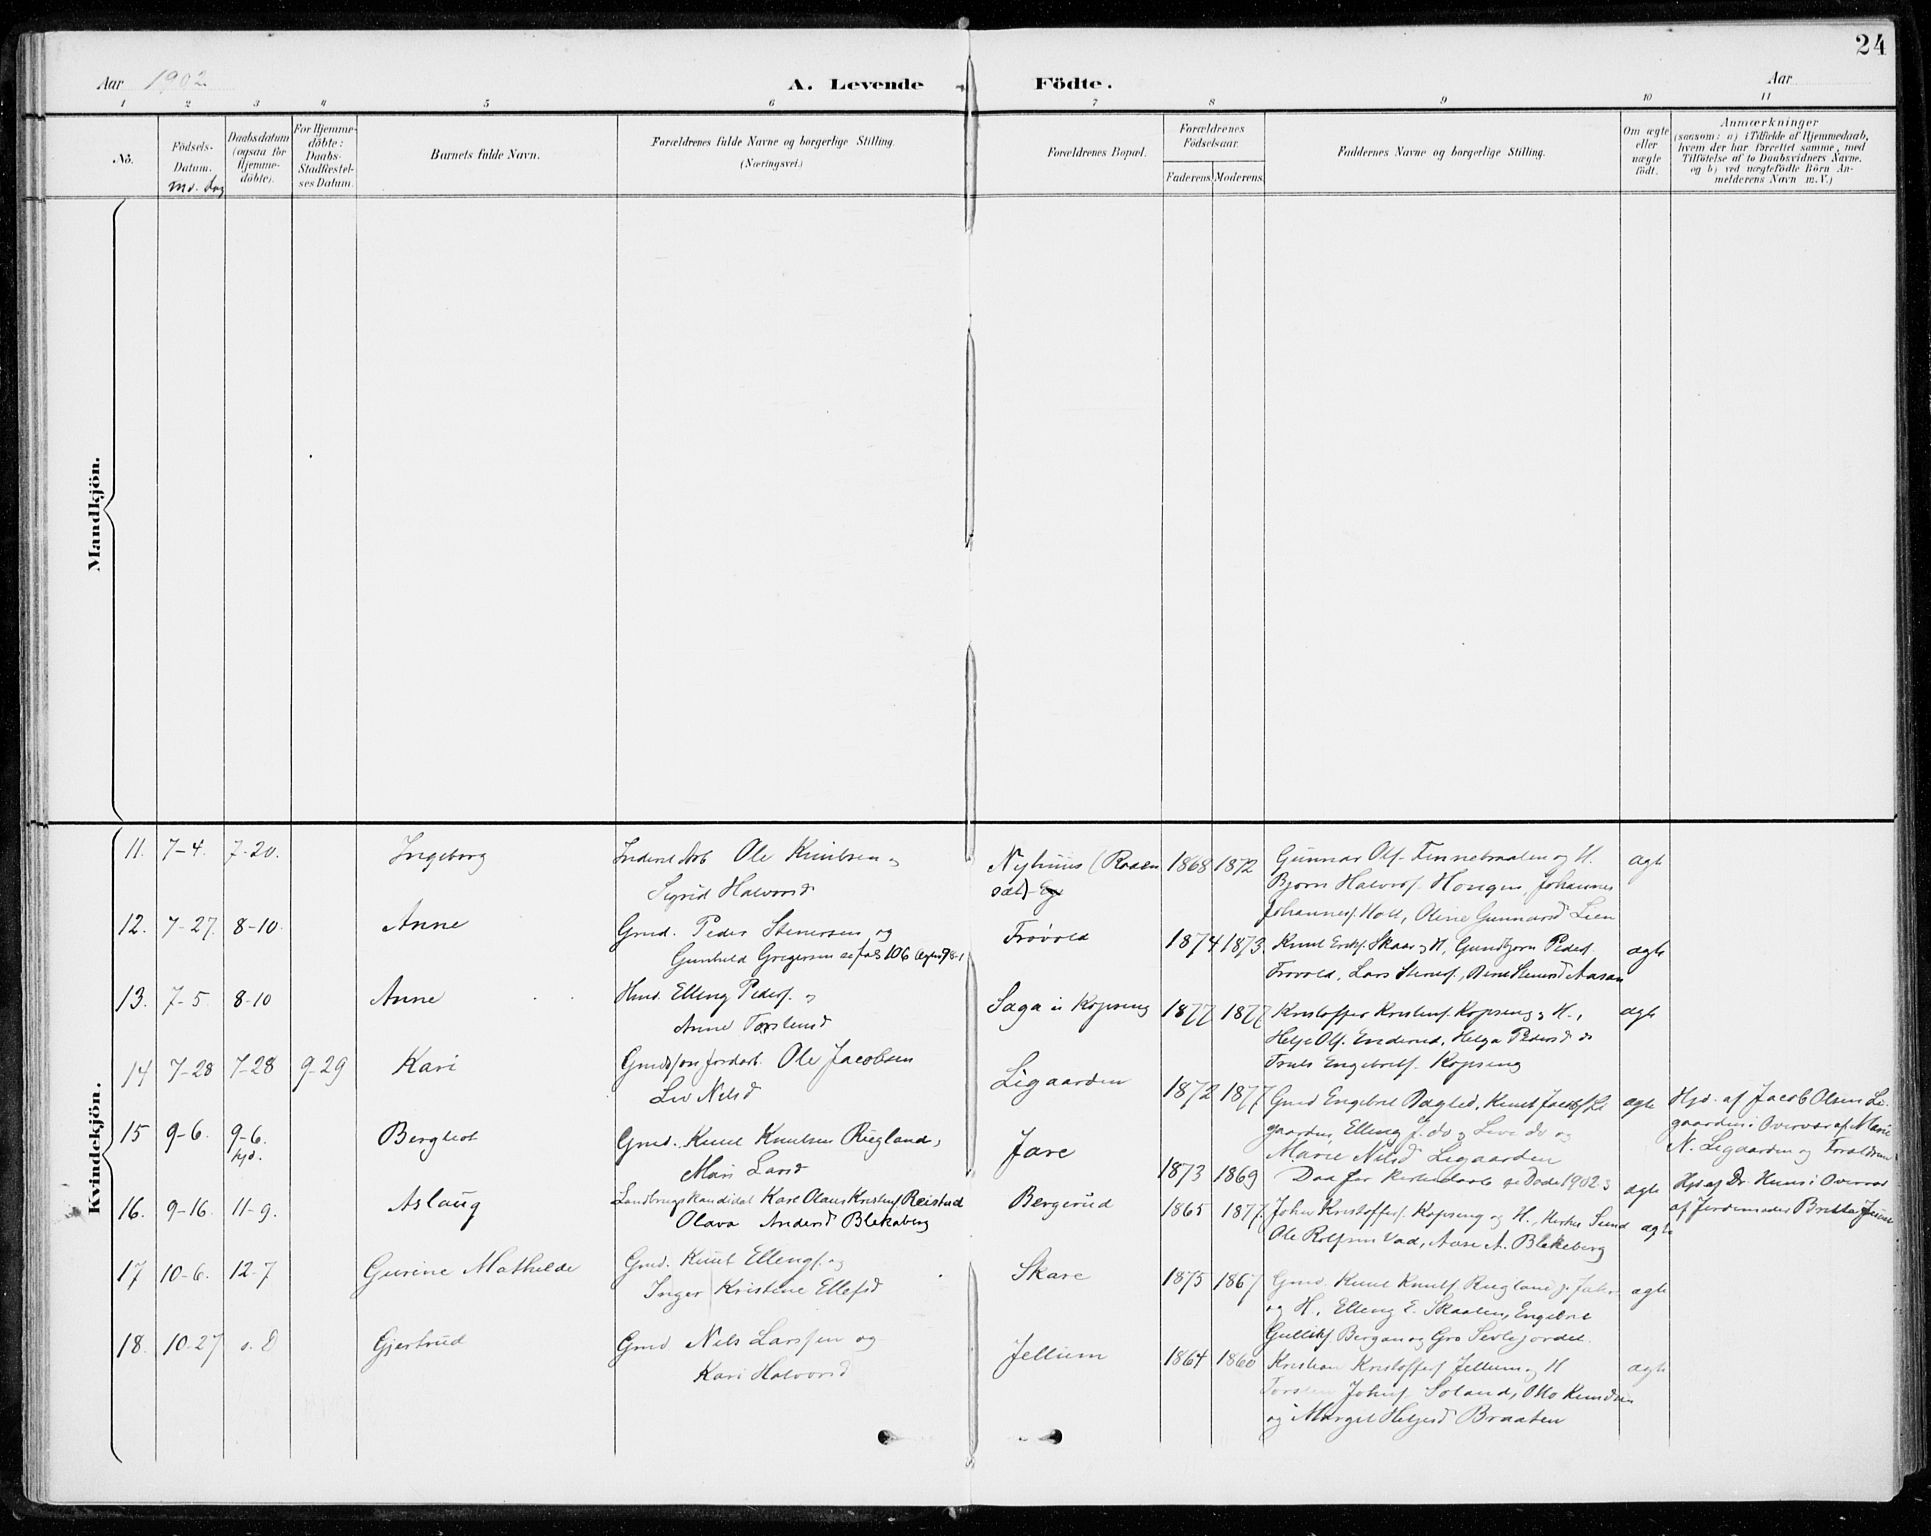 24
Aar 1902
A. Levende Födte.
Aar
1 2 3 4 5 6 7 8 9 10 11
No.
Födsels-
Datum.
Md. Dag
Daabsdatum
(ogsaa for
Hjemme-
döbte).
For Hjemme-
döbte:
Daabs-
Stadfæstel-
ses Datum.
Barnets fulde Navn.
Forældrenes fulde Navne og borgerlige Stilling.
(Næringsvei.)
Forældrenes Bopæl.
Forældrenes
Födselsaar.
Faderens. Moderens.
Faddernes Navne og borgerlige Stilling.
Om ægte
eller
uægte
födt.
Anmærkninger
(saasom: a) i Tilfælde af Hjemmedaab,
hvem der har forrettet samme, med
Tilföielse af to Daabsvidners Navne.
og b) ved uægtefödte Börn An-
melderens Navn m. V.)
Mandkjön.
Kvindekjön.
11. 7-4. 7-20. Ingeborg
Ole Knutsen
Sigrid Halvorsd
Nyhuus
1868 1872
Gunnar Ols. Finnebraaten og H.
Bjørn Halvors. Haugen, Johannes
Johannes. Moll, Oline Gunnarsd Lien
ægte
12. 7-27. 8-10. Anne
Gmd. Peder Stenersen og
Gunhild Gregersen
Frøvold
1874 1873.
Knut Eriks. Skaar og H, Gundbjørn Peders.
Frøvold, Lars Steners.
ægte
13. 7-5. 8-10 Anne
Hmd. Elling Peders. og
Anne Torstensd
Saga u Kopseng
1877 1877
Kristoffer Kristens. Kopseng og H.,
Helge Ols. Enderud, Helga Pedersd
Truls Engebrets. Kopseng
ægte
14 7-28 7-28 9-29 Kari
Ole Jacobsen
Liv Nilsd
Ligaarden
1872 1877
Gmd Engebret Dagled, Knut Jacobs. Li
gaarden, Elling J. do og Live do og
Marie Nilsd Ligaarden
ægte
Hjd. af Jacob Olsen Li-
gaarden i Overvær af Marie
N. Ligaarden og Forældrene
15 9-6. 9-6. hjd. Bergliot
Gmd. Knut Knutsen Rugland,
Mari Larsd
Jare
1873 1869
Død før Kirkedaab se Døde 1902. 3
ægte
16. 9-16. 11-9. Aslaug
Landbrugskandidat Karl Olaus Kristens. Reistad
Olava Andersd Blekeberg
Bergerud
1865 1877.
John Kristoffers. Kopseng og H.,
Ole Rolfsen Vad, Aase A. Blekeberg
ægte
17 10-6. 12-7 Gurine Mathilde
Gmd. Knut Ellings. og
Inger Kristine Ellefsd
Skare
1875 1867
Gmd. Knut Knuts. Rugland
og H., Elling E. Skaaten, Engebret
Gulliks. Bergan og Gro Sevlejordet.
ægte
18. 10-27 s. D Gjertrud
Gmd Nils Larssen og
Kari Halvorsd
Jellum
1864 1860
Kristian Kristoffers. Jellum og H
Torsten Johns. Soland, Otto Knudsen
og Margit Helgesd Braaten
ægte